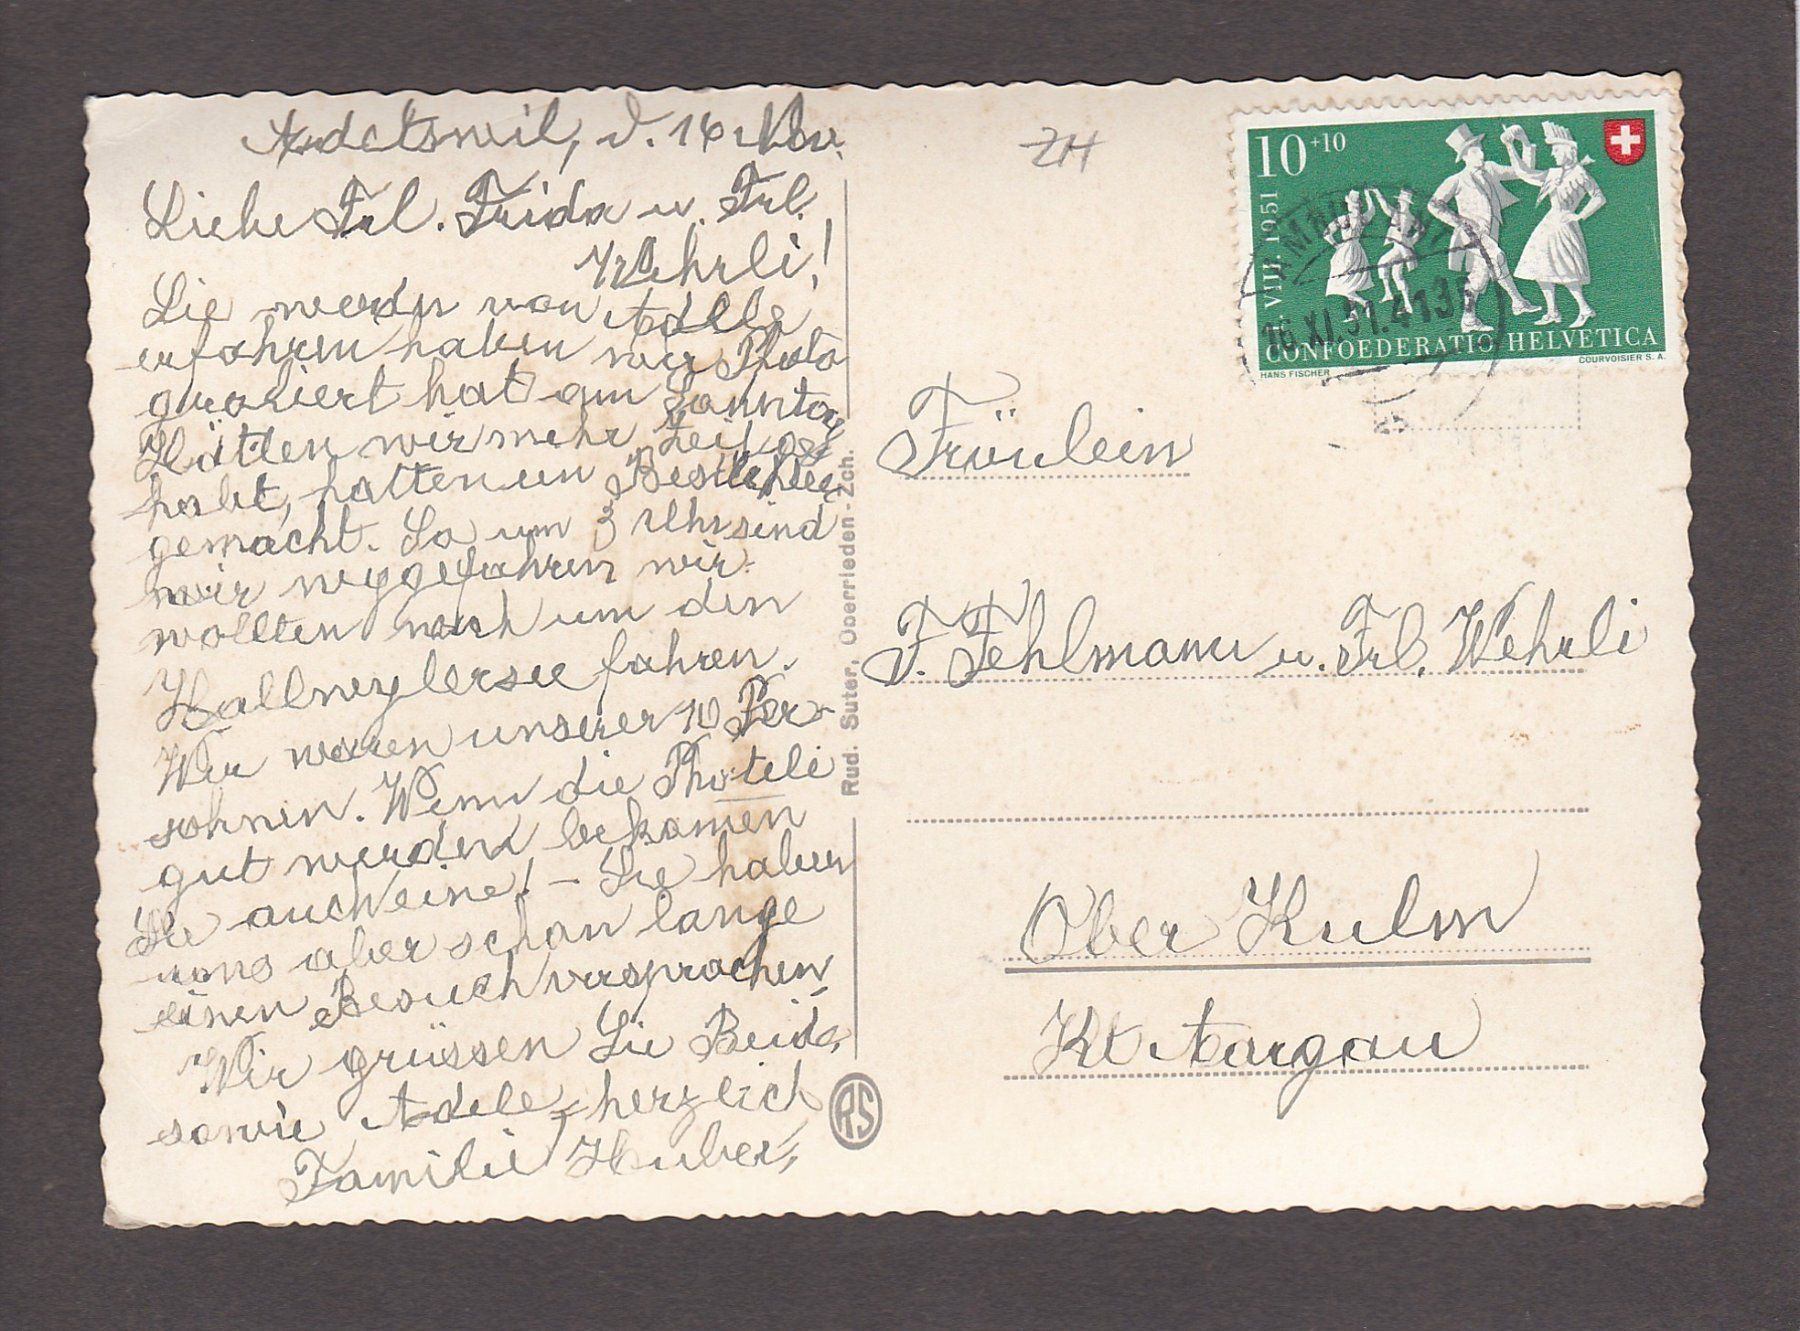 Adetswil, d. 16 Nov.
Liebe Frl. Frida u. Frl.
Wehrli!
Sie werdn von Adele
erfahren haben wer Photo
grafiert hat am Sonntag
Hätten wir mehr Zeit ge
habt, hatten en Besüchlee
gemacht. So um 3 Uhr sind
wir weggefahren wir
wollten noch um den
Hallwylersee fahren.
Wir waren unserer 10 Per-
sohnen. Wenn die Phöteli
gut werden bekamen
Sie auch eine! - Sie haben
uns aber schon lange
einen Besuch versprochen
Wir grüssen Sie Beide,
sowie Adele, herzlich
Familie Huber,
Rud. Suter, Oberrieden - Zch.
RS
ZH
10 +10
VIII. 1951
16.XI.51.
CONFOEDERATIO HELVETICA
HANS FISCHER
COURVOISIER S. A.
Fräulein
F. Fehlmann u. Frl. Wehrli
Ober Kulm
Kt Aargau